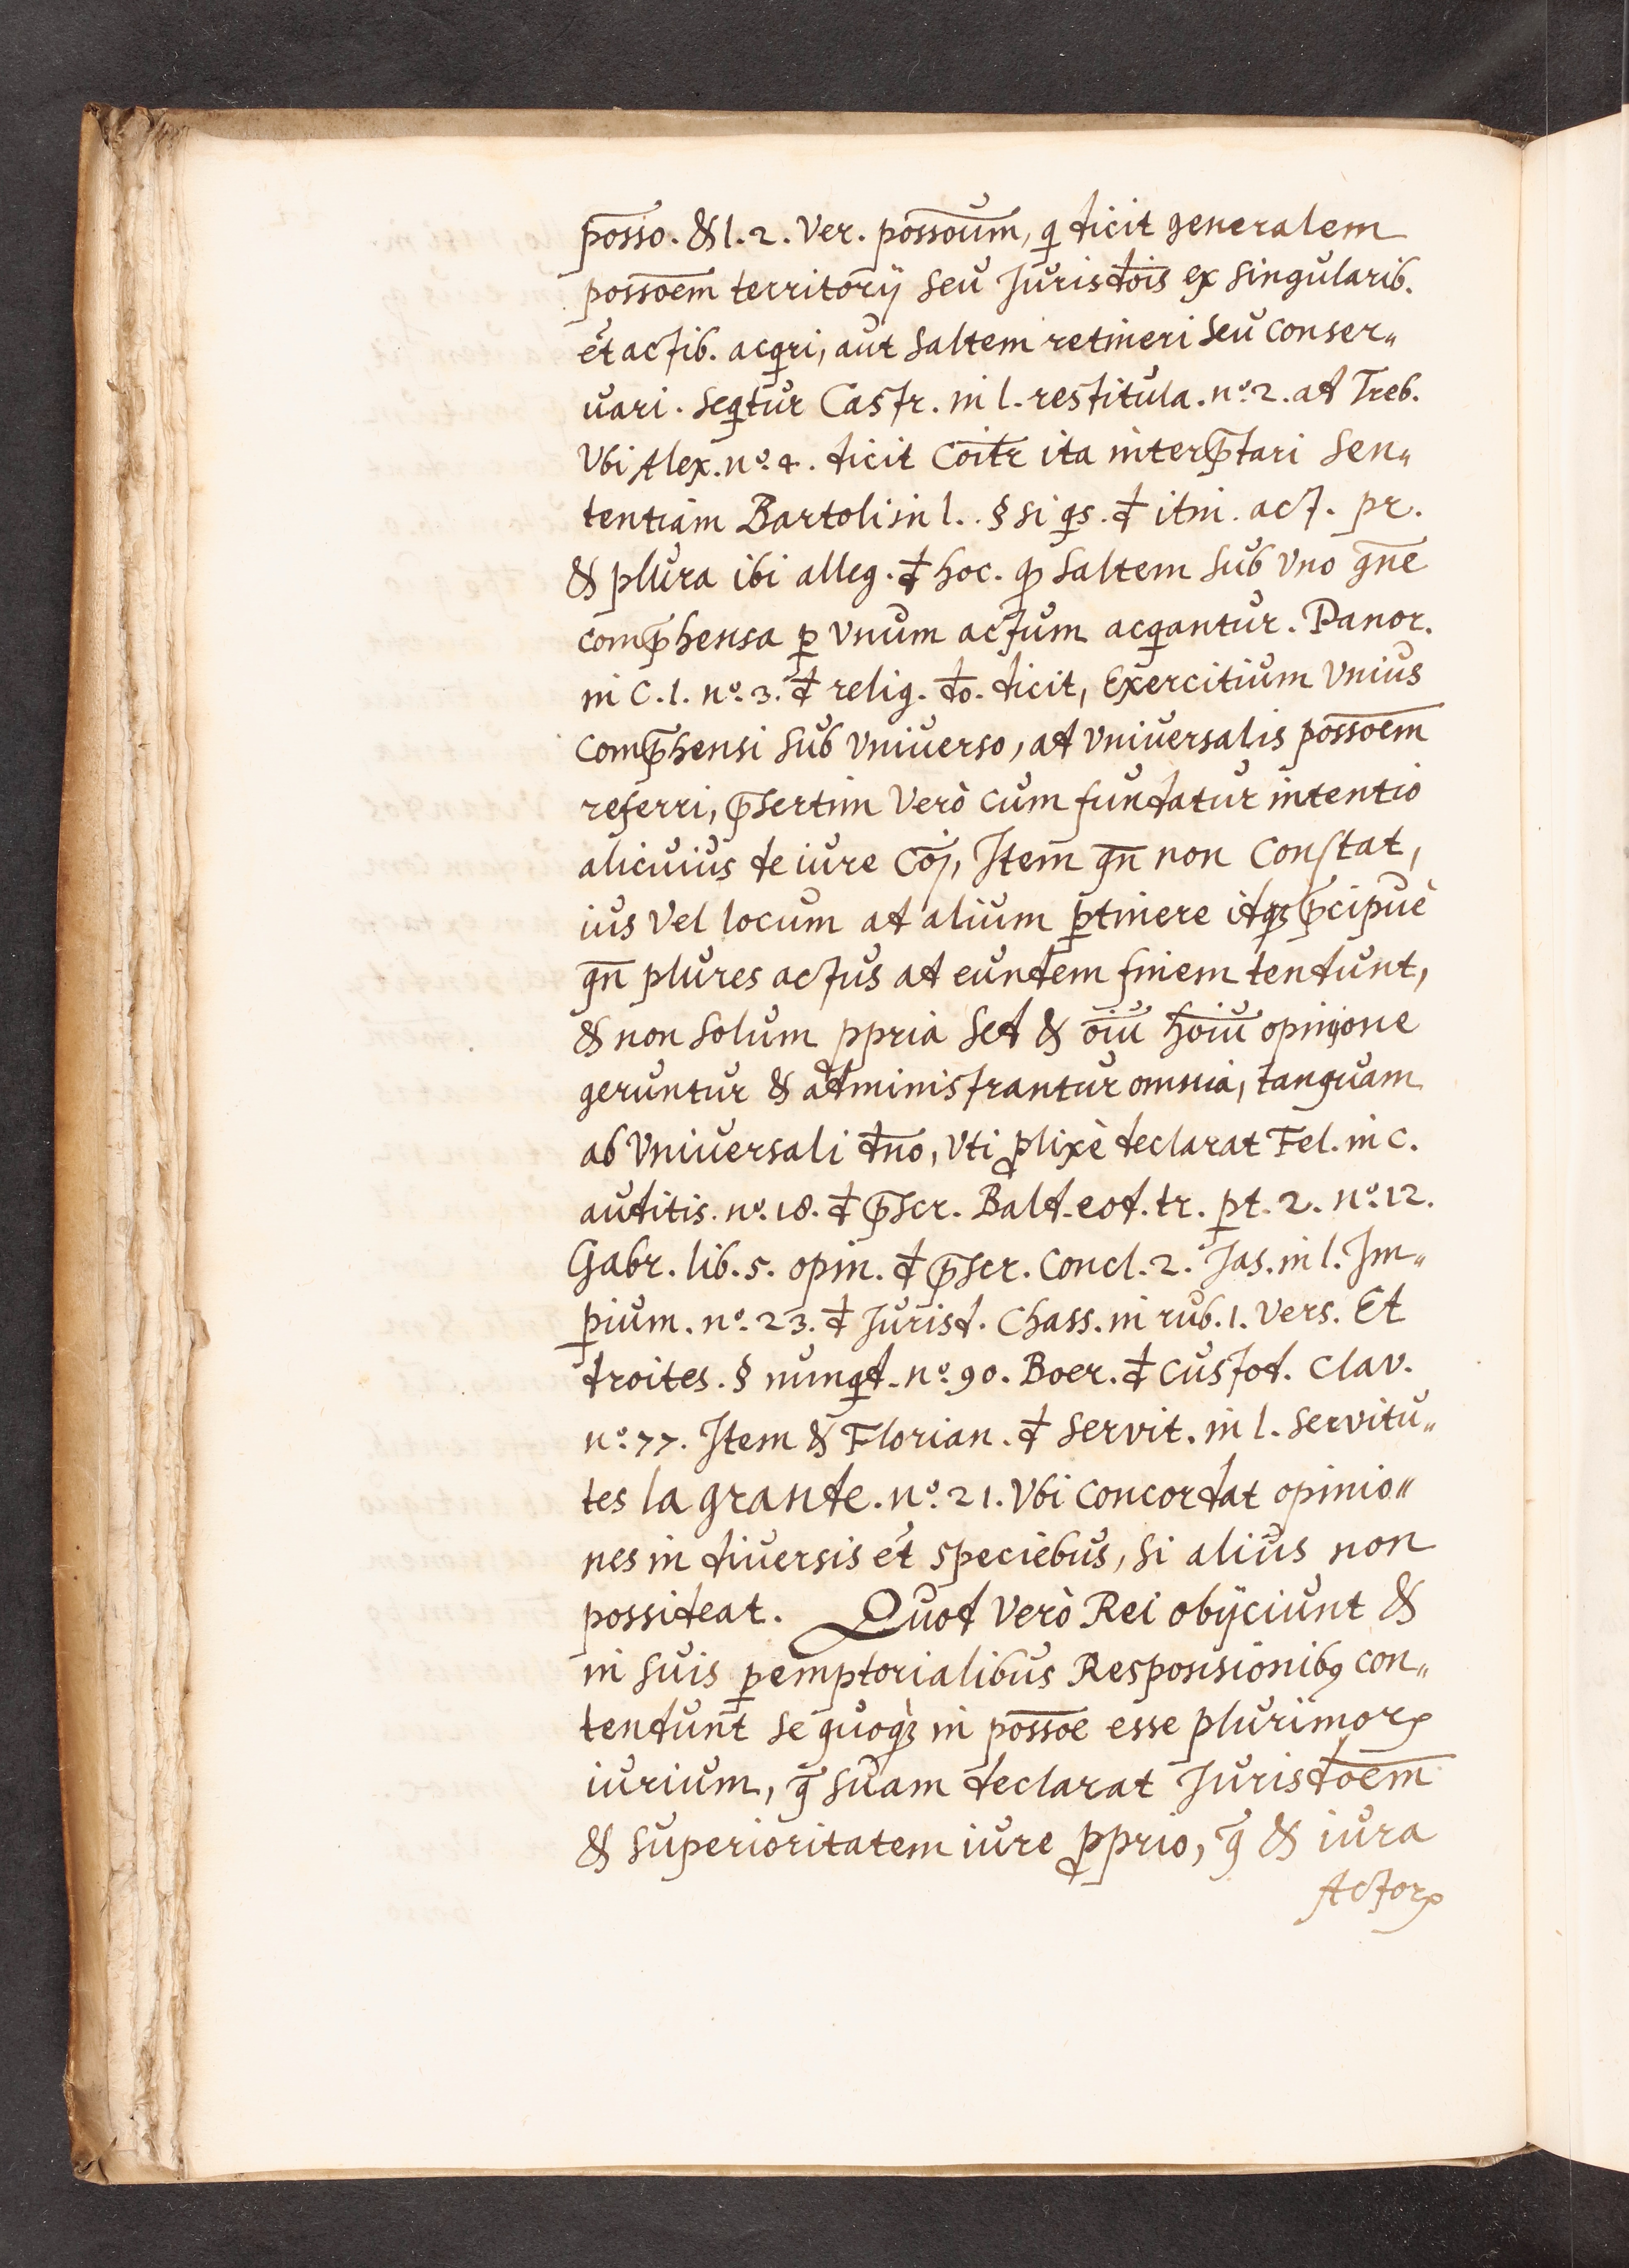 posso. & l. 2. Ver. possoum, q dicit generalem
possoem territorÿ seu Jurisdois ex singularib.
et actib. acqri, aut saltem retineri seu conser„
uari. seqtur Castr. in l. restitula. nº. 2. ad Treb.
Vbi Alex. nº. 4. dicit Coitr ita interp̄tari sen„
tentiam Bartoli in l. . § si qs. đ itin. act. pr.
& plura ibi alleg. đ hoc. ꝙ saltem sub vno gn̄e
comp̄hensa ꝑ vnum actum acqantur. Panor.
in C. 1. nº. 3. đ relig. do. dicit, Exercitium Vnius
Comp̄hensi sub vniuerso, ad vniuersalis possoem
referri, p̄sertim Verò cum fundatur intentio
alicuius de iure Coj, Item qn̄ non Constat,
ius Vel locum ad alium ꝑtinere idqꝫ p̄cipuè
qn̄ plures actus ad eundem finem tendunt,
& non solum ꝓpria sed & oīu hoīu opinione
geruntur & administrantur omnia, tanquam
ab Vniuersali dn̄o, Vti ꝓlixè declarat Fel. in c.
auditis. nº. 18. đ p̄scr. Bald. eod. tr. ꝑt. 2. nº. 12.
Gabr. lib. 5. opin. đ p̄scr. Concl. 2. Jas. in l. Im„
ꝑium. nº. 23. đ Jurisd. Chass. in rub. 1. Vers. Et
droites. § nunqd. nº. 90. Boer. đ Custod. Clav.
nº. 77. Item & Florian. đ servit. in l. servitu„
tes la grande. nº. 21. Vbi Concordat opinio„
nes in diuersis et speciebus, si alius non
possideat. Quod Verò Rei obÿciunt &
in suis ꝑemptorialibus Responsionibꝰ con„
tendunt se quoqꝫ in possoe esse plurimorꝝ
iurium, q̄ suam declarat Jurisdoem
& superioritatem iure ꝓprio, q̄ & iura
Actorꝝ